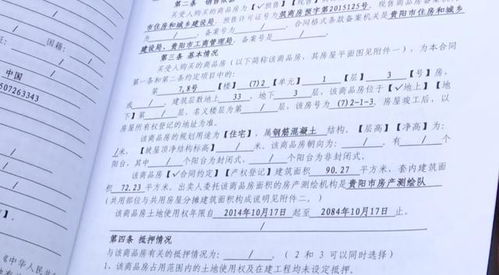 第二条 销售依据
买受人购买的商品房为【✓预售】【现售
市住房和城乡建设局、预售许可证号为筑商房预字第2015125号。现售商品房备案机关
为 / ,备案号为 / 。合同格式条款备案机关是贵阳市住房和城乡
建设局、贵阳市工商管理局,备案号是 /
第三条 基本情况
买受人购买的商品房(以下简称该商品房,其房屋平面图见附件一),为本合同
第一条和第二条约定项目中的:
第 7,8号 【楼】(7)2【单元】 1 【层】 3 【号】房,
或 / 。建筑层数地上 33 ,地下 3 层,该商品房位于【✓地上】【地
下】第 / 层,名义楼层为第 / 层,该房号为(7)2-1-3。房屋竣工后,以
房屋所有权登记的地址为准。
该商品房的规划用途为【住宅】,属钢筋混凝土 结构,【层高】【净高】为:
/米,【坡屋顶净结构标高】 / 米,该商品房朝向为: / ,有 / 个
阳台,其中 / 个阳台为封闭式, / 个阳台为非封闭式。
该商品房【✓合同约定】【产权登记】建筑面积 90.27 平方米,套内建筑面
积 72.23 平方米。出卖人委托该商品房面积的房产测绘机构是贵阳市房产测绘队
(共用部位与共用房屋分摊建筑面积构成说明见附件二。)
该商品房土地使用权年限自2014年10月17日起至2084年10月17日止。
第四条 抵押情况
与该商品房有关的抵押情况为: / 。(2和3可以同时选择)
1、该商品房占用范围内的土地使用权及在建工程均未设定抵押。
国籍:
中国
507263343
《中华人民共